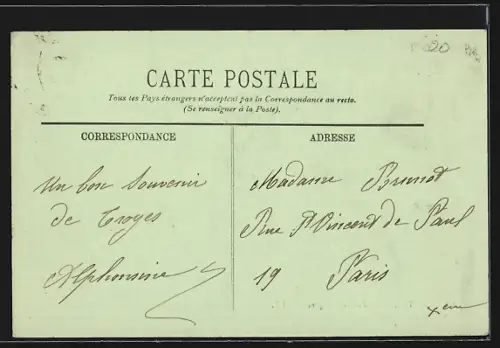 20
CARTE POSTALE
Tous les Pays étrangers n'acceptent pas la Correspondance au recto.
(Se renseigner à la Poste).
CORRESPONDANCE
ADRESSE
Un bon Souvenir
de Troyes
Alphonsine
Madame Brunot
Rue St Vincent de Paul
19 Paris
xeme